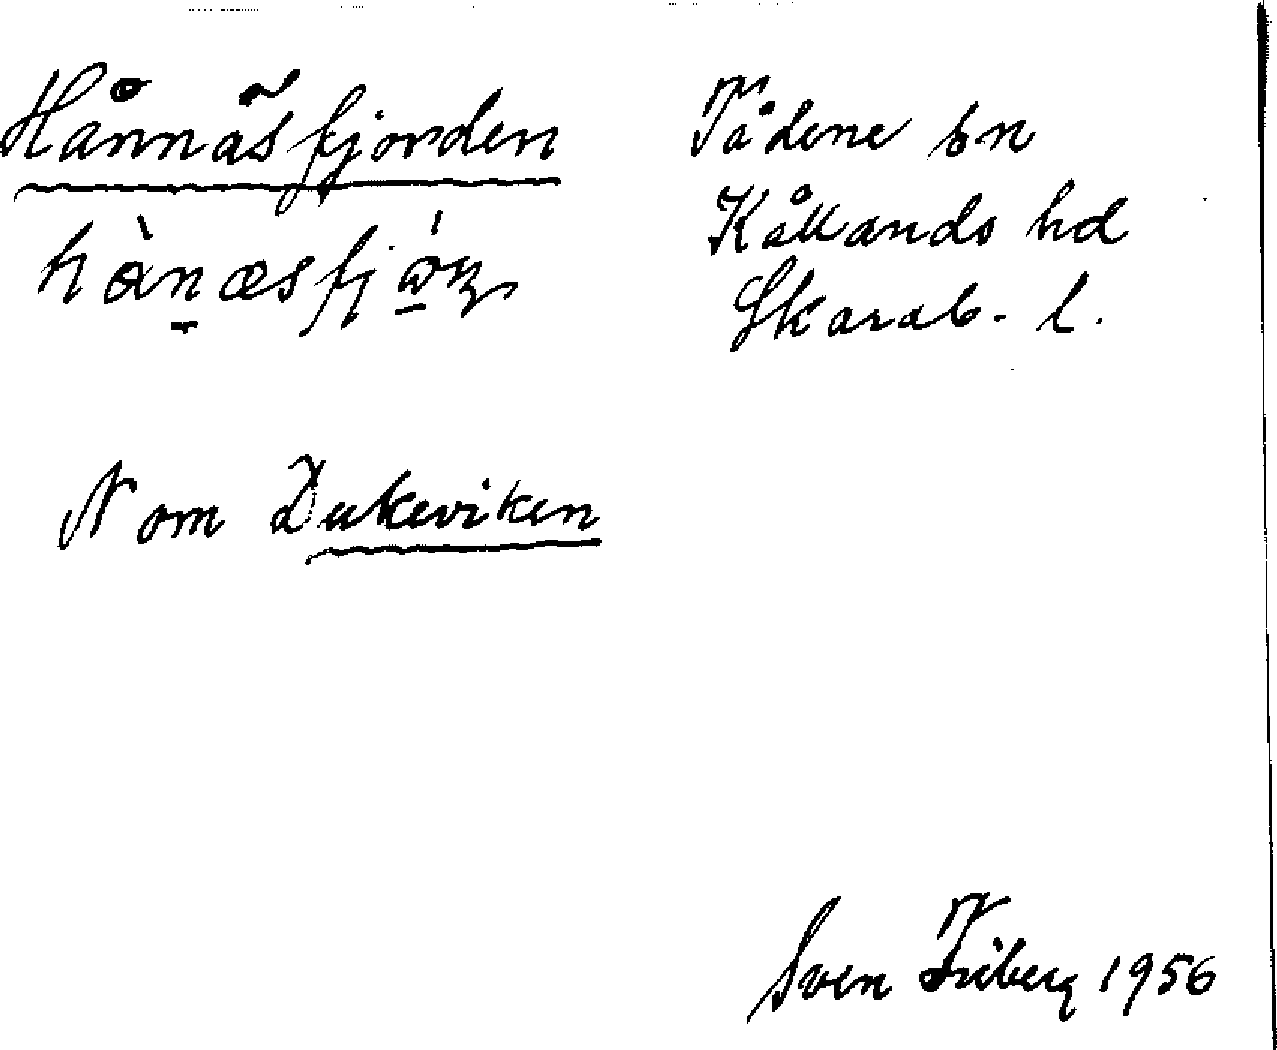 Hånnäsfjorden
Tådene sn
Kållands hd
Skarab. l.
N om Dukeviken
Sven Friberg 1956